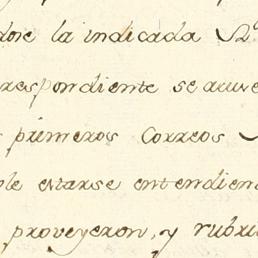 la indicada
respondiente se
primeros Correos
estarse entendien
proveyeron, y rubri